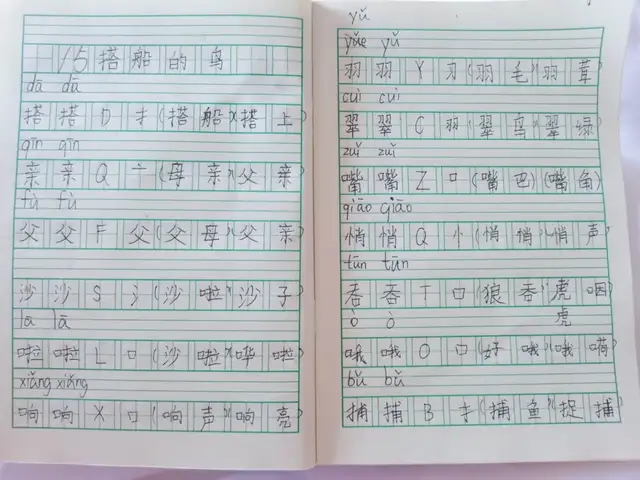 15搭船的鸟
dā dā
搭 搭 D 扌(搭船)(搭上
qīn qīn
亲 亲 Q 亠(母亲)(父亲
fù fù
父 父 F 父(父母)(父亲
沙 沙 S 氵(沙啦)(沙子
la lā
啦 啦 L 口(沙啦)(哗啦)
xiǎng xiǎng
响 响 X 口(响声)(响亮)
yǔ
yǔe yǔ
羽 羽 Y 习(羽毛)(羽茸)
cuì cuì
翠 翠 C 羽(翠鸟)(翠绿)
zuǐ zuǐ
嘴 嘴 Z 口(嘴巴)(嘴角)
qiāo qiāo
悄 悄 Q 忄(悄悄)(悄声
tūn tūn
吞 吞 T 口(狼吞虎咽)
ò ò 虎
哦 哦 O 口(好哦)(哦
bǔ bǔ
捕 捕 B 扌(捕鱼)(捉捕)